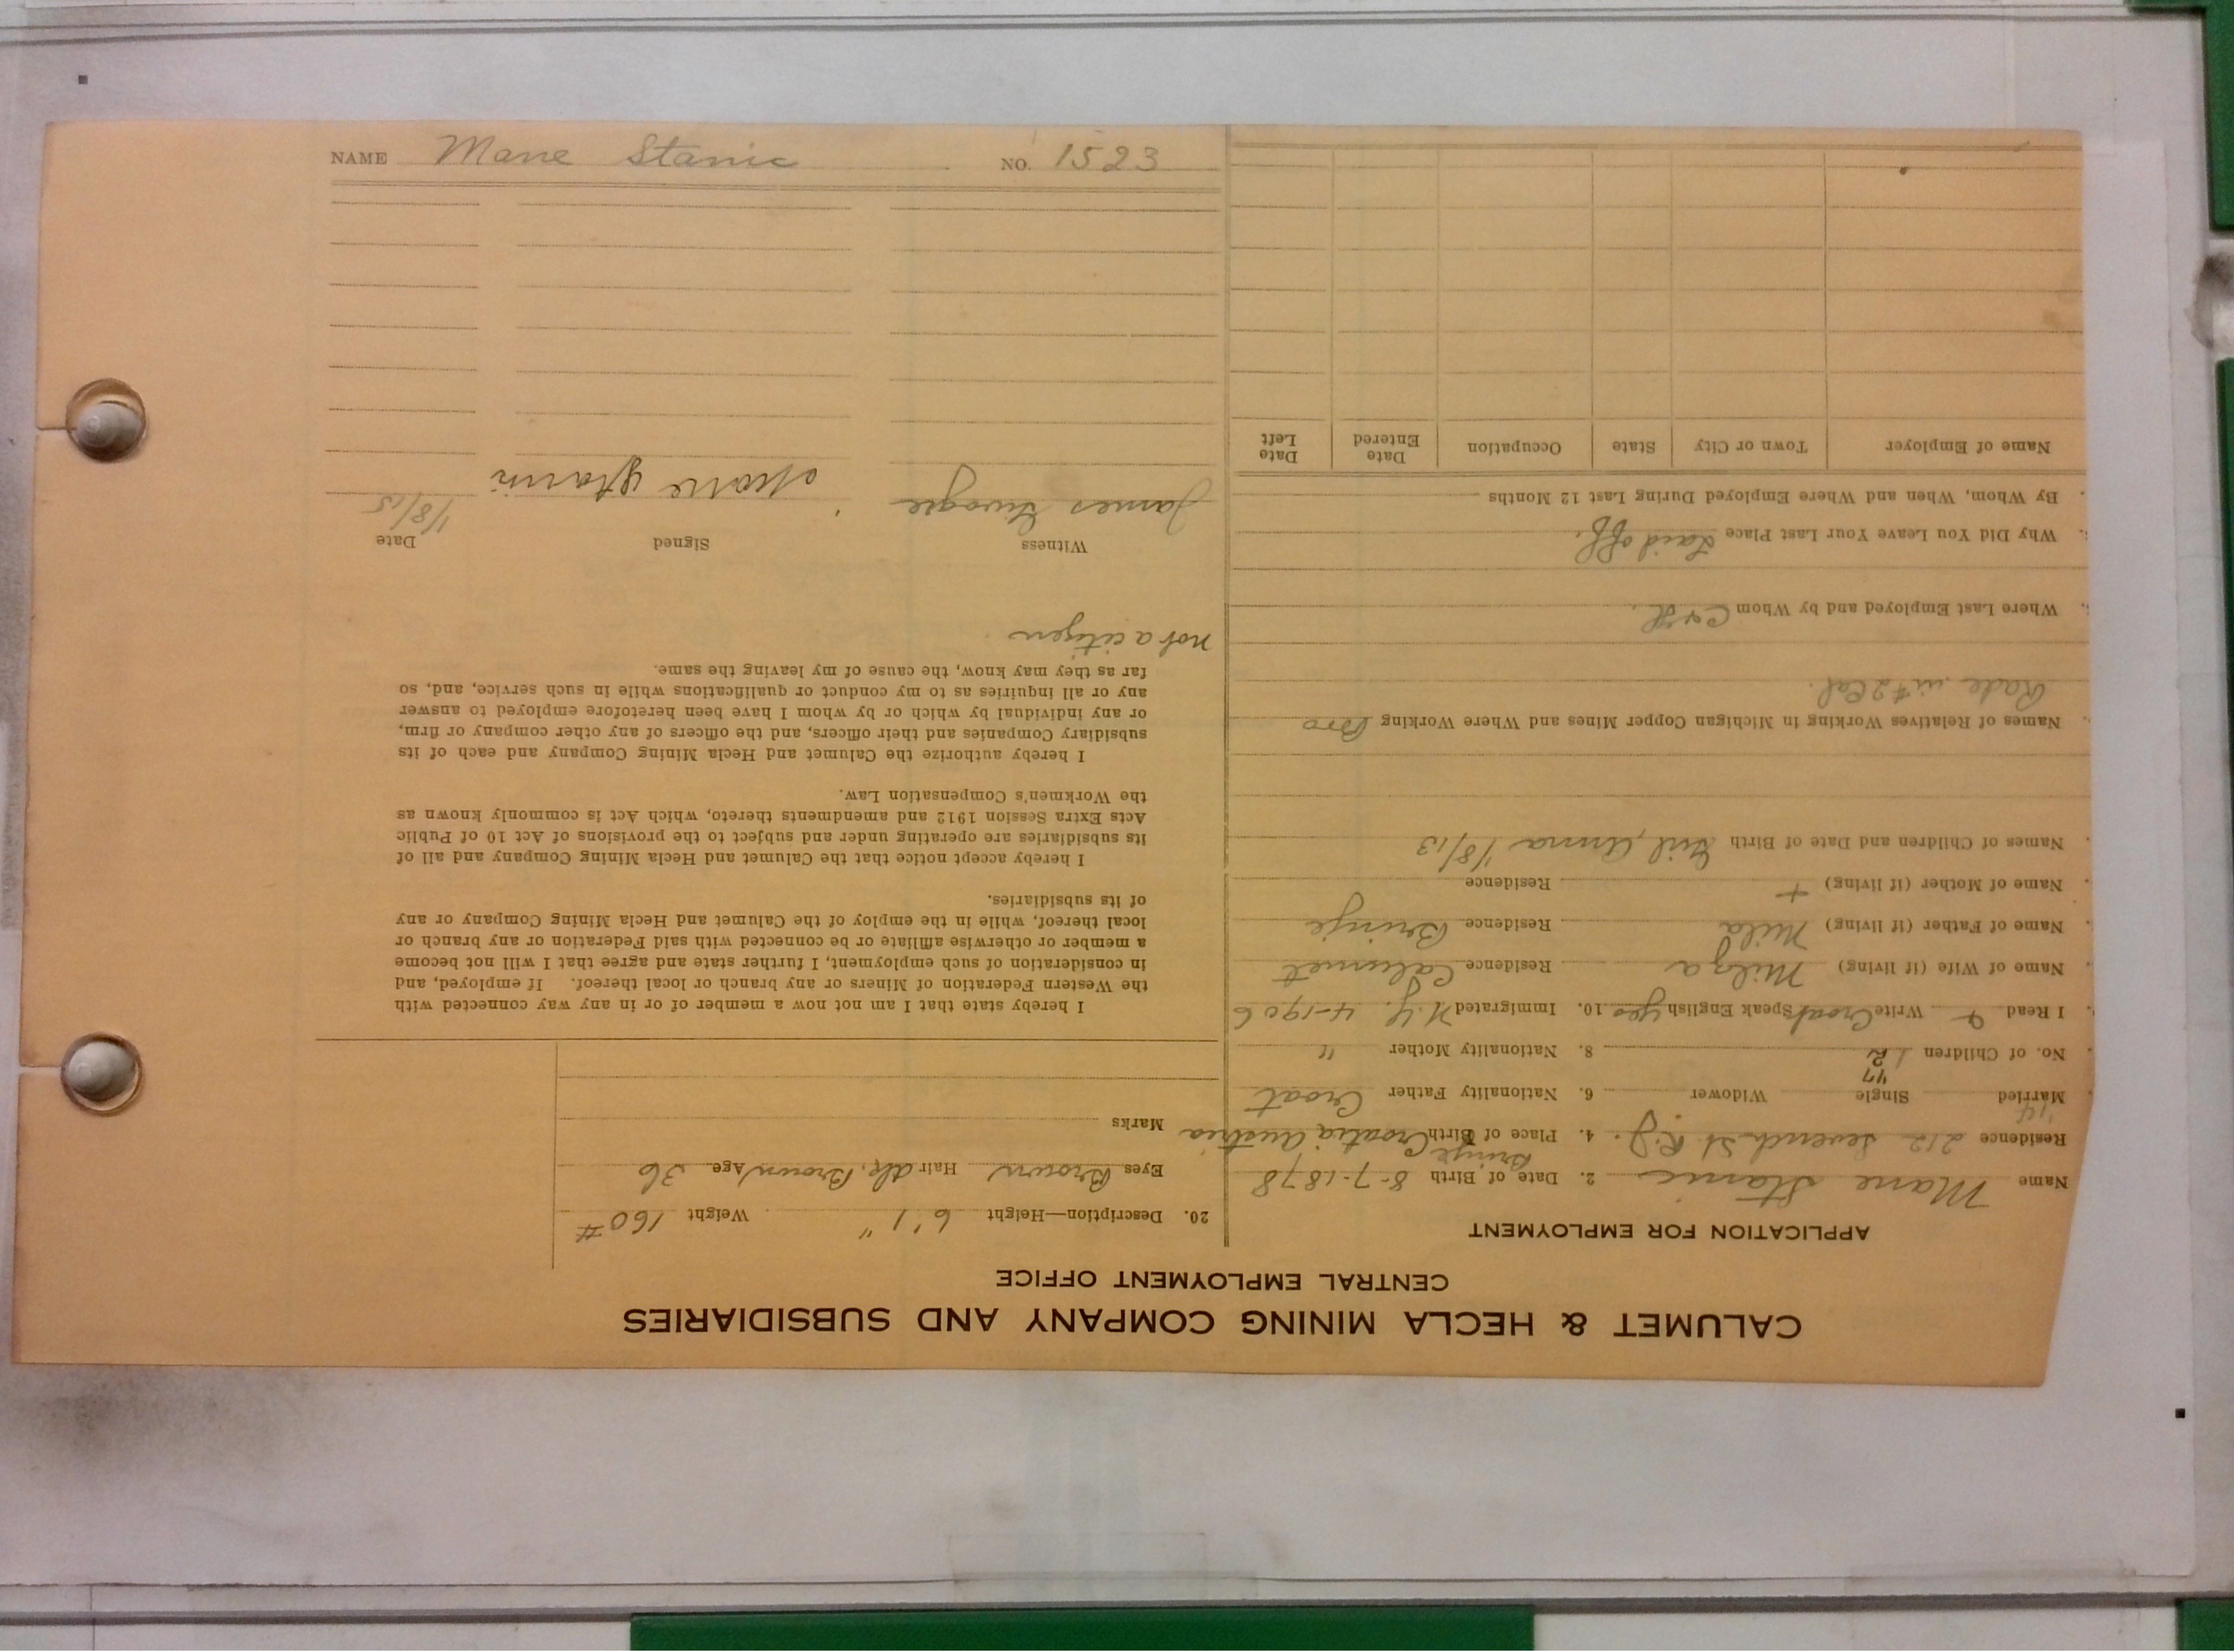 CALUMET & HECLA MINING COMPANY AND SUBSIDIARIES
CENTRAL EMPLOYMENT OFFICE
APPLICATION FOR EMPLOYMENT
Name Mane Stanic 2. Date of Birth 8-7-1878
Brinje
Residence 212 Seventh St R.J. 4. Place of Birth Croatia Austria
'14
Married Single Widower 6. Nationality Father Croat
No. of Children 1 8. Nationality Mother "
I Read & Write Croat Speak English yes 10. Immigrated N.Y. 4-1906
Name of Wife (if living) Milza Residence Calumet
Name of Father (if living) Mila Residence Brinje
Name of Mother (if living) + Residence
Names of Children and Date of Birth Anna 1/8/13
Names of Relatives Working in Michigan Copper Mines and Where Working Bro
Rade in #2 Cal.
Where Last Employed and by Whom C & H.
Why Did You Leave Your Last Place Laid off.
By Whom, When and Where Employed During Last 12 Months
Name of Employer Town or City State Occupation Date Entered Date Left
20. Description—Height 6'1" Weight 160#
Eyes Brown Hair dk. Brown Age 36
Marks
I hereby state that I am not now a member of or in any way connected with
the Western Federation of Miners or any branch or local thereof. If employed, and
in consideration of such employment, I further state and agree that I will not become
a member or otherwise affiliate or be connected with said Federation or any branch or
local thereof, while in the employ of the Calumet and Hecla Mining Company or any
of its subsidiaries.
I hereby accept notice that the Calumet and Hecla Mining Company and all of
its subsidiaries are operating under and subject to the provisions of Act 10 of Public
Acts Extra Session 1912 and amendments thereto, which Act is commonly known as
the Workmen's Compensation Law.
I hereby authorize the Calumet and Hecla Mining Company and each of its
subsidiary Companies and their officers, and the officers of any other company or firm,
or any individual by which or by whom I have been heretofore employed to answer
any or all inquiries as to my conduct or qualifications while in such service, and, so
far as they may know, the cause of my leaving the same.
not a citizen
Witness Signed Date
James Mane Stanic 1/8/15
NAME Mane Stanic NO. 1523